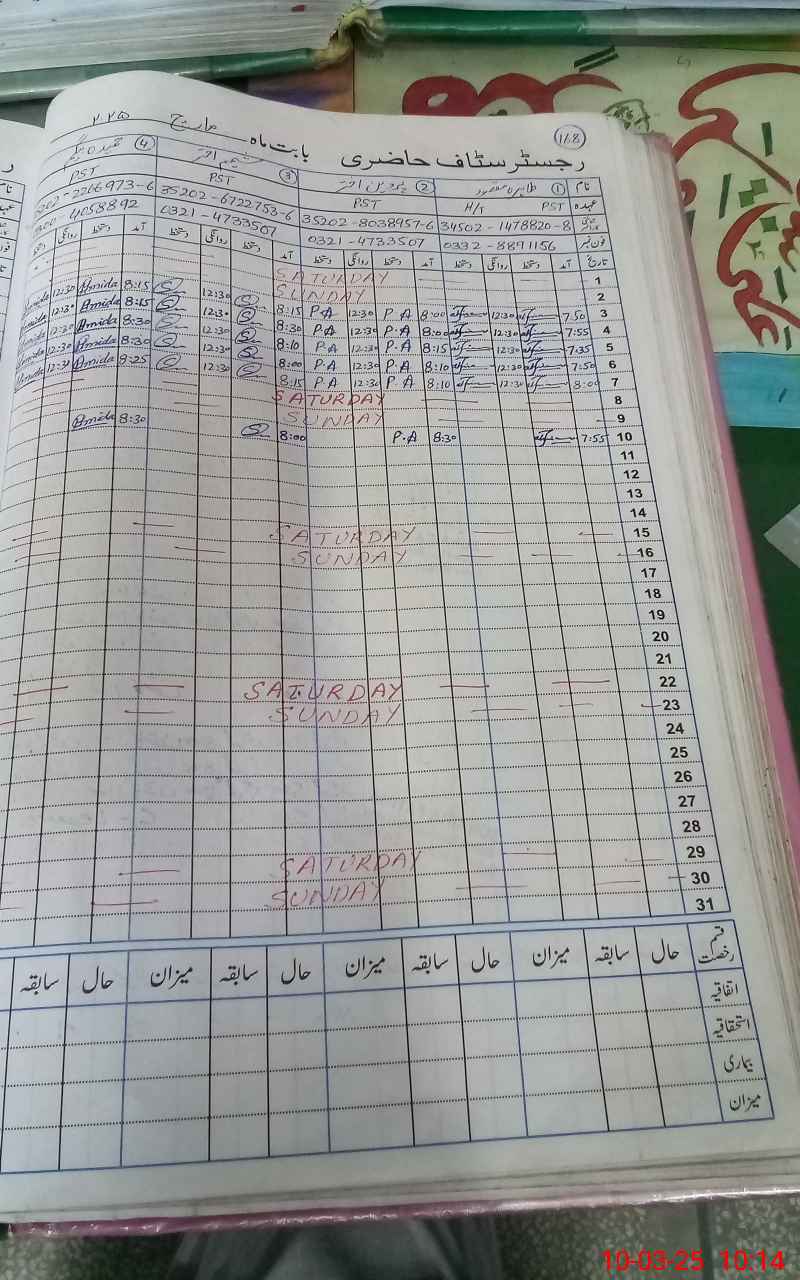 118
رجسٹر سٹاف حاضری بابت ماہ مارچ ۲۰۲۵
نام ① طاہرہ مقصود ② پروین اختر ③ شمیم اختر ④
عہدہ PST H/T PST PST PST
34502-1478820-8 35202-8038957-6 35202-6722753-6 2266973-6
فون نمبر 0332-8891156 0321-4733507 0321-4733507 4058892
تاریخ آمد دستخط روانگی دستخط آمد دستخط روانگی دستخط آمد دستخط روانگی دستخط آمد دستخط روانگی
1 SATURDAY
2 SUNDAY
3 7:50 12:30 8:00 P.A 12:30 P.A 8:15 12:30 8:15 Amida 12:30
4 7:55 12:30 8:00 P.A 12:30 P.A 8:30 12:30 8:15 Amida 12:30
5 7:35 12:30 8:15 P.A 12:30 P.A 8:10 12:30 8:30 Amida 12:30
6 7:50 12:30 8:10 P.A 12:30 P.A 8:00 12:30 8:30 Amida 12:30
7 8:00 12:30 8:10 P.A 12:30 P.A 8:15 12:30 8:25 Amida 12:30
8 SATURDAY
9 SUNDAY
10 7:55 8:30 P.A 8:00 8:30 Amida
11
12
13
14
15 SATURDAY
16 SUNDAY
17
18
19
20
21
22 SATURDAY
23 SUNDAY
24
25
26
27
28
29 SATURDAY
30 SUNDAY
31
قسم رخصت حال سابقہ میزان حال سابقہ میزان حال سابقہ میزان حال سابقہ
اتفاقیہ
استحقاقیہ
بیماری
میزان
10-03-25 10:14